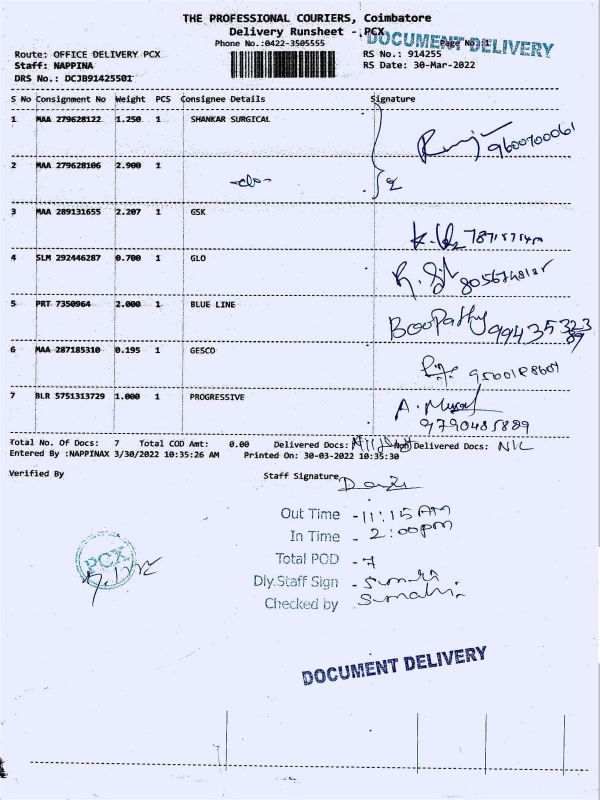 THE PROFESSIONAL COURIERS, Coimbatore
Delivery Runsheet - PCX
DOCUMENT DELIVERY
Phone No.:0422-3505555 Page No.:1
Route: OFFICE DELIVERY PCX RS No.: 914255
Staff: NAPPINA RS Date: 30-Mar-2022
DRS No.: DCJB91425501
S No Consignment No Weight PCS Consignee Details Signature
1 MAA 279628122 1.250 1 SHANKAR SURGICAL
9600700061
2 MAA 279628106 2.900 1 -do- 2
3 MAA 289131655 2.207 1 GSK
4 SLM 292446287 0.700 1 GLO
5 PRT 7350964 2.000 1 BLUE LINE
Boopathy 99435 323
89
6 MAA 287185310 0.195 1 GESCO
7 BLR 5751313729 1.000 1 PROGRESSIVE
9790485889
Total No. Of Docs: 7 Total COD Amt: 0.00 Delivered Docs: Non Delivered Docs: NIL
Entered By :NAPPINAX 3/30/2022 10:35:26 AM Printed On: 30-03-2022 10:35:30
Verified By Staff Signature
Out Time - 11:15 AM
In Time - 2:00pm
Total POD - 7
Dly.Staff Sign -
Checked by
PCX
DOCUMENT DELIVERY